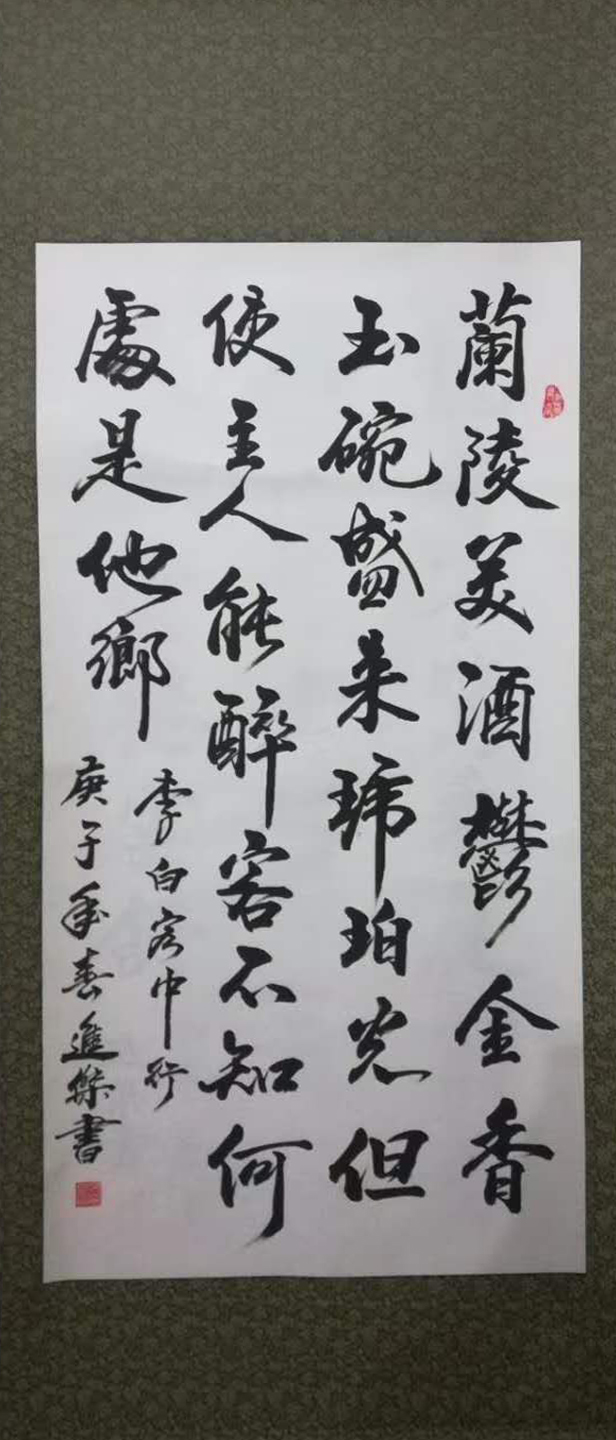 蘭陵美酒鬱金香
玉碗盛来琥珀光但
使主人能醉客不知何
處是他鄉
李白客中行
庚子年春進傑書